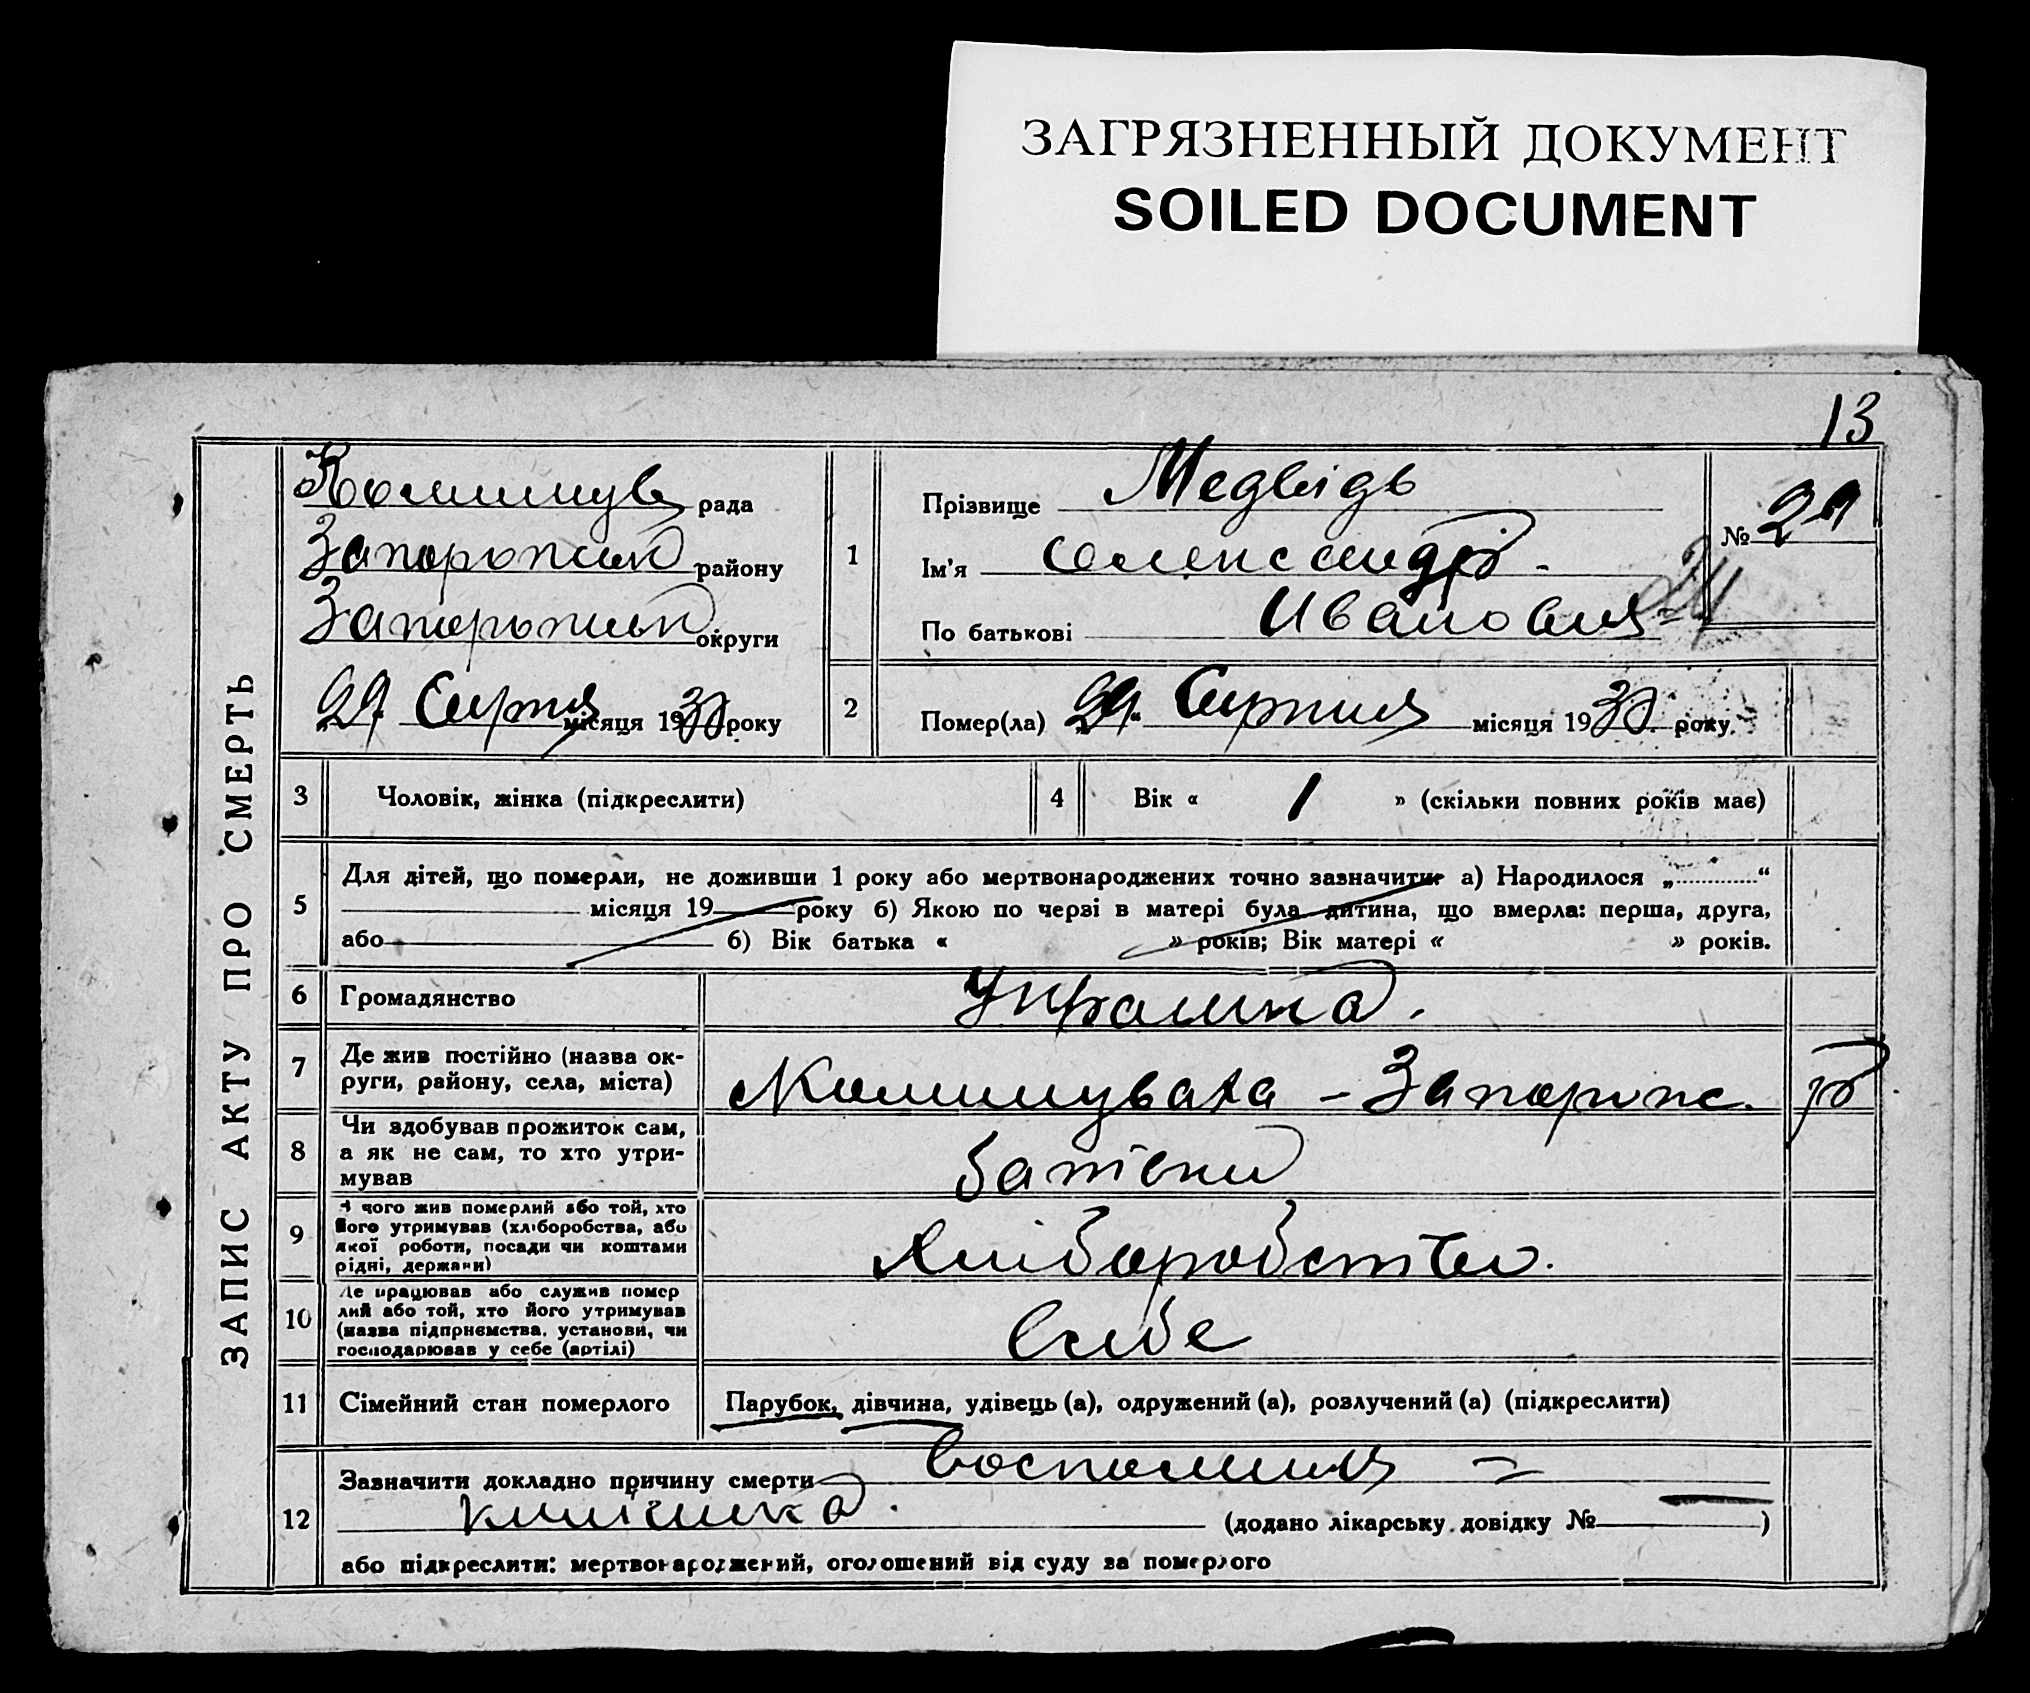 ЗАГРЯЗНЕННЫЙ ДОКУМЕНТ
SOILED DOCUMENT
13
ЗАПИС АКТУ ПРО СМЕРТЬ
рада
району
округи
Серпня місяця 1930 року
1 Прізвище Медвідь
Ім'я
По батькові
№
2 Помер(ла) Серпня місяця 1930 року
3 Чоловік, жінка (підкреслити)
4 Вік « 1 » (скільки повних років має)
5 Для дітей, що померли, не доживши 1 року або мертвонароджених точно зазначити: а) Народилося „ “
місяця 19 року б) Якою по черзі в матері була дитина, що вмерла: перша, друга,
або б) Вік батька « » років; Вік матері « » років.
6 Громадянство Украинка
7 Де жив постійно (назва ок-
руги, району, села, міста) Комишуваха - Запорожс. р
8 Чи здобував прожиток сам,
а як не сам, то хто утри-
мував батьки
9 З чого жив померлий або той, хто
його утримував (хліборобства, або
якої роботи, посади чи коштами
рідні, держави) Хліборобство.
10 Де працював або служив помер
лий або той, хто його утримував
(назва підприємства, установи, чи
господарював у себе (артілі) себе
11 Сімейний стан померлого Парубок, дівчина, удівець (а), одружений (а), розлучений (а) (підкреслити)
12 Зазначити докладно причину смерти
(додано лікарську довідку № )
або підкреслити: мертвонароджений, оголошений від суду за померлого